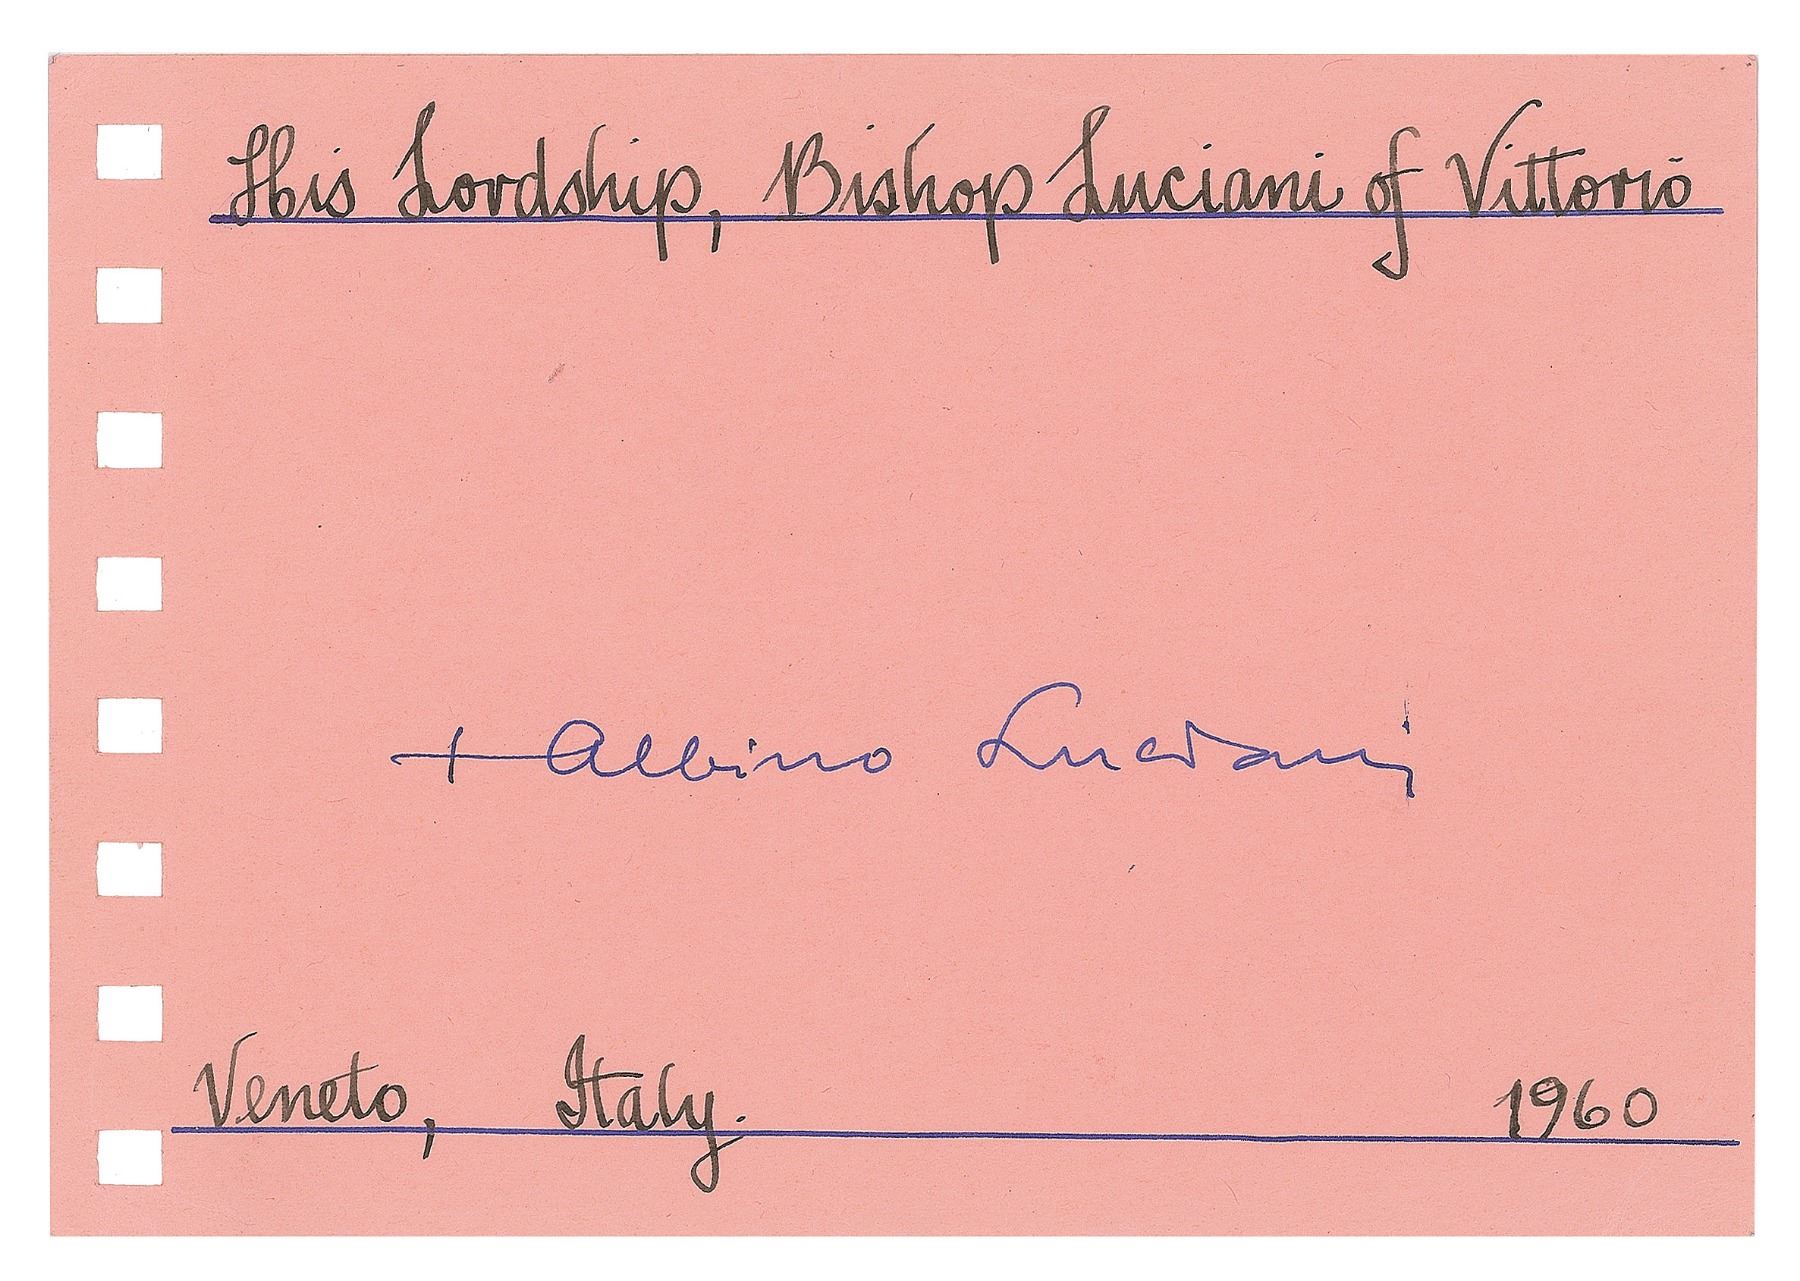 His Lordship, Bishop Luciani of Vittorio
+ Albino Luciani
Veneto, Italy. 1960